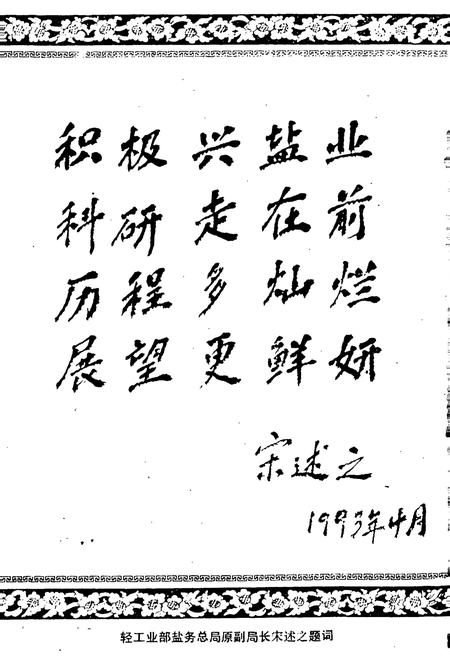 积极兴盐业
科研走在前
历程多灿烂
展望更鲜妍
宋述之
1993年4月
轻工业部盐务总局原副局长宋述之题词